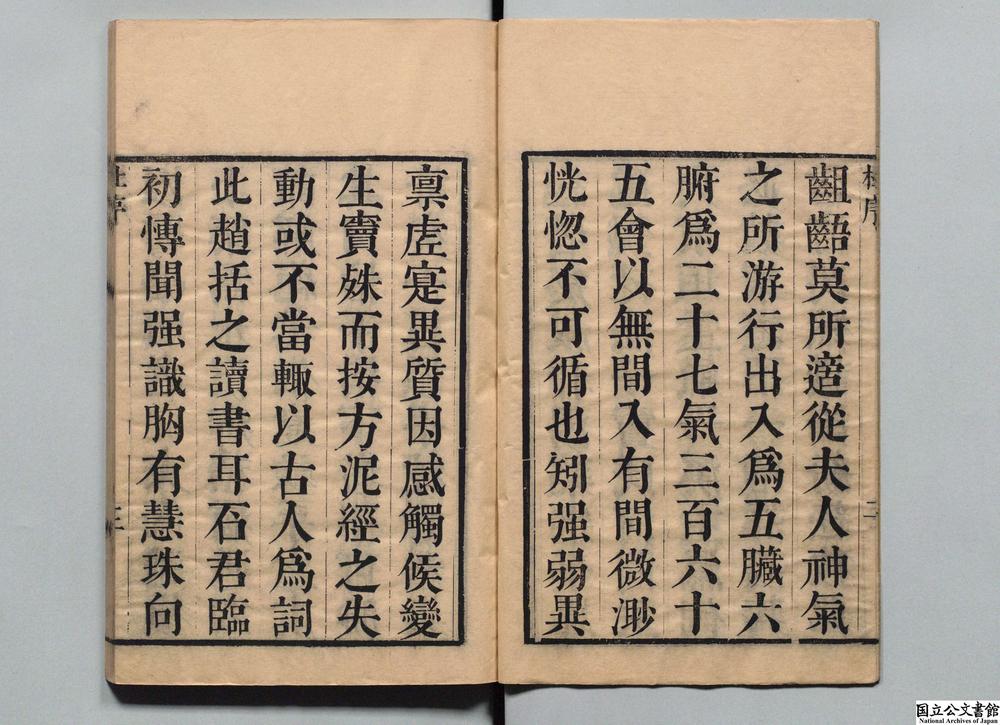 齟齬莫所適從夫人神氣
之所游行出入爲五臟六
腑爲二十七氣三百六十
五會以無間入有間微渺
恍惚不可循也矧强弱異
禀虗寔異質因感觸候變
生竇姝而按方泥經之失
動或不當輙以古人爲詞
此趙括之讀書耳石君臨
初愽聞强識胸有慧珠向
国立公文書館
National Archives of Japan